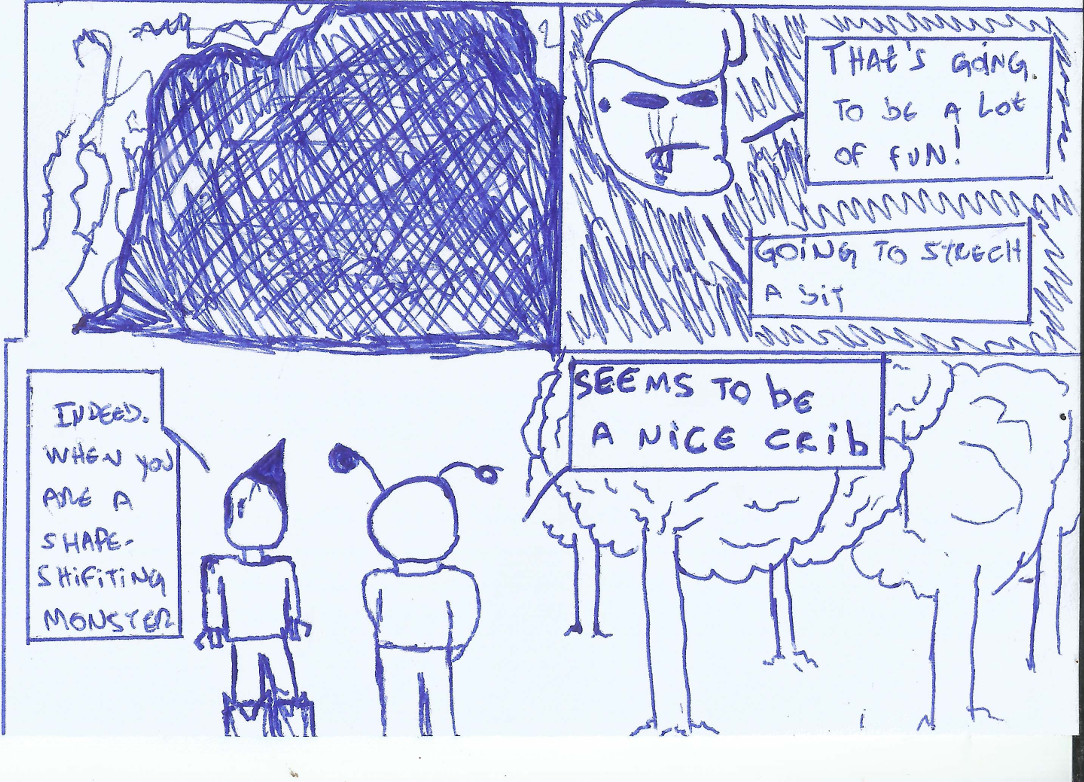 2
THAt's GOiNG.
TO bE A LOt
OF fUN!
GOING TO STRECH
A biT
INDEED.
WHEN YOU
ARE A
SHAPE-
SHiFiTiNG
MONSTER
SEEMS TO bE
A NiCE CRib